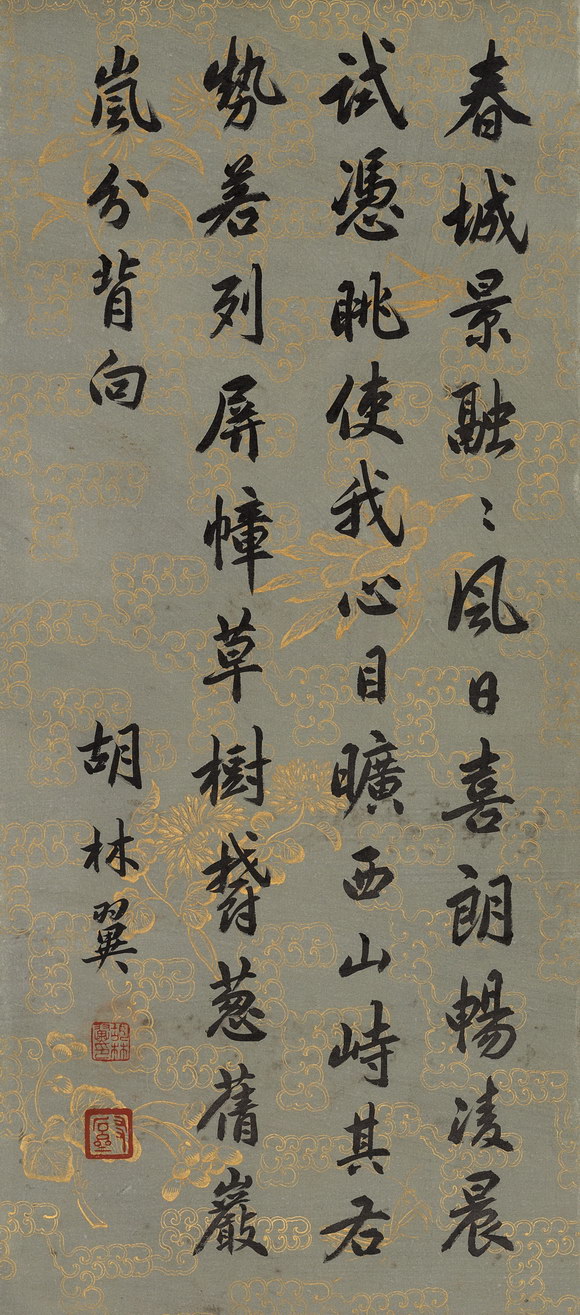 春城景融〻風日喜朗暢凌晨
試憑眺使我心目曠西山峙其右
勢若列屏幛草樹欝蔥蒨巖
嵐分背向
胡林翼
胡林翼印